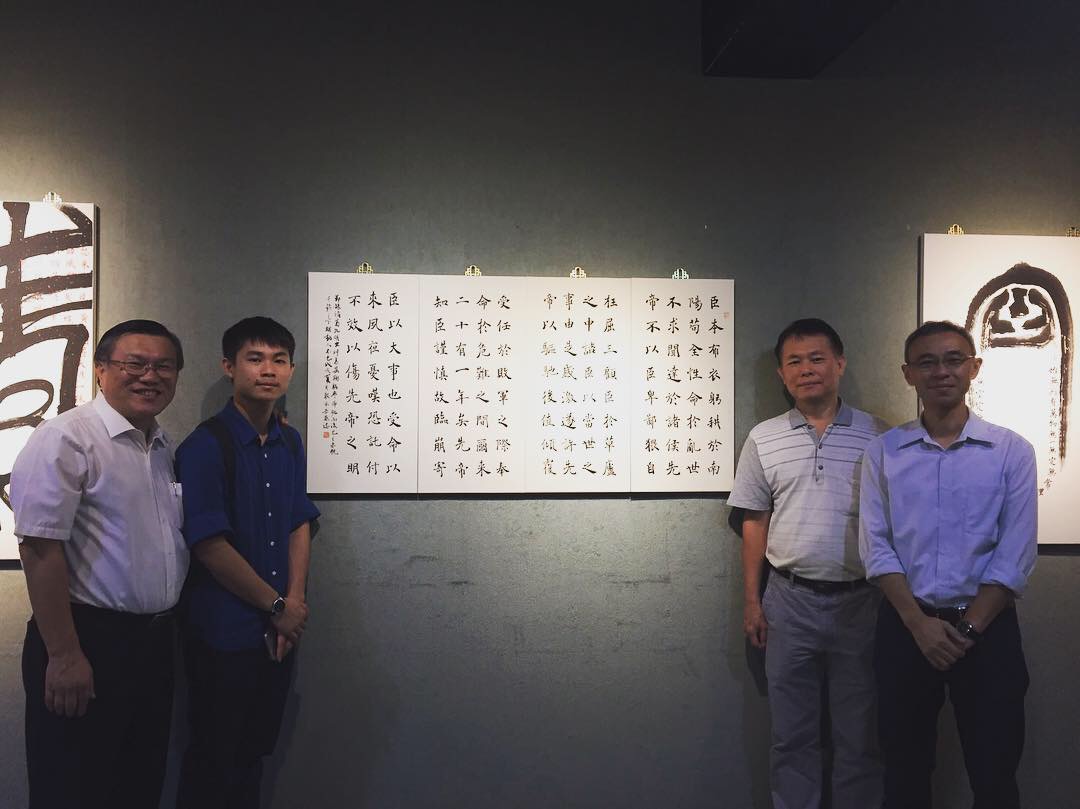 臣本布衣躬耕於南
陽苟全性命於亂世
不求聞達於諸侯先
帝不以臣卑鄙猥自
枉屈三顧臣於草廬
之中諮臣以當世之
事由是感激遂許先
帝以驅馳後值傾覆
受任於敗軍之際奉
命於危難之間爾來
二十有一年矣先帝
知臣謹慎故臨崩寄
臣以大事也受命以
來夙夜憂嘆恐託付
不效以傷先帝之明